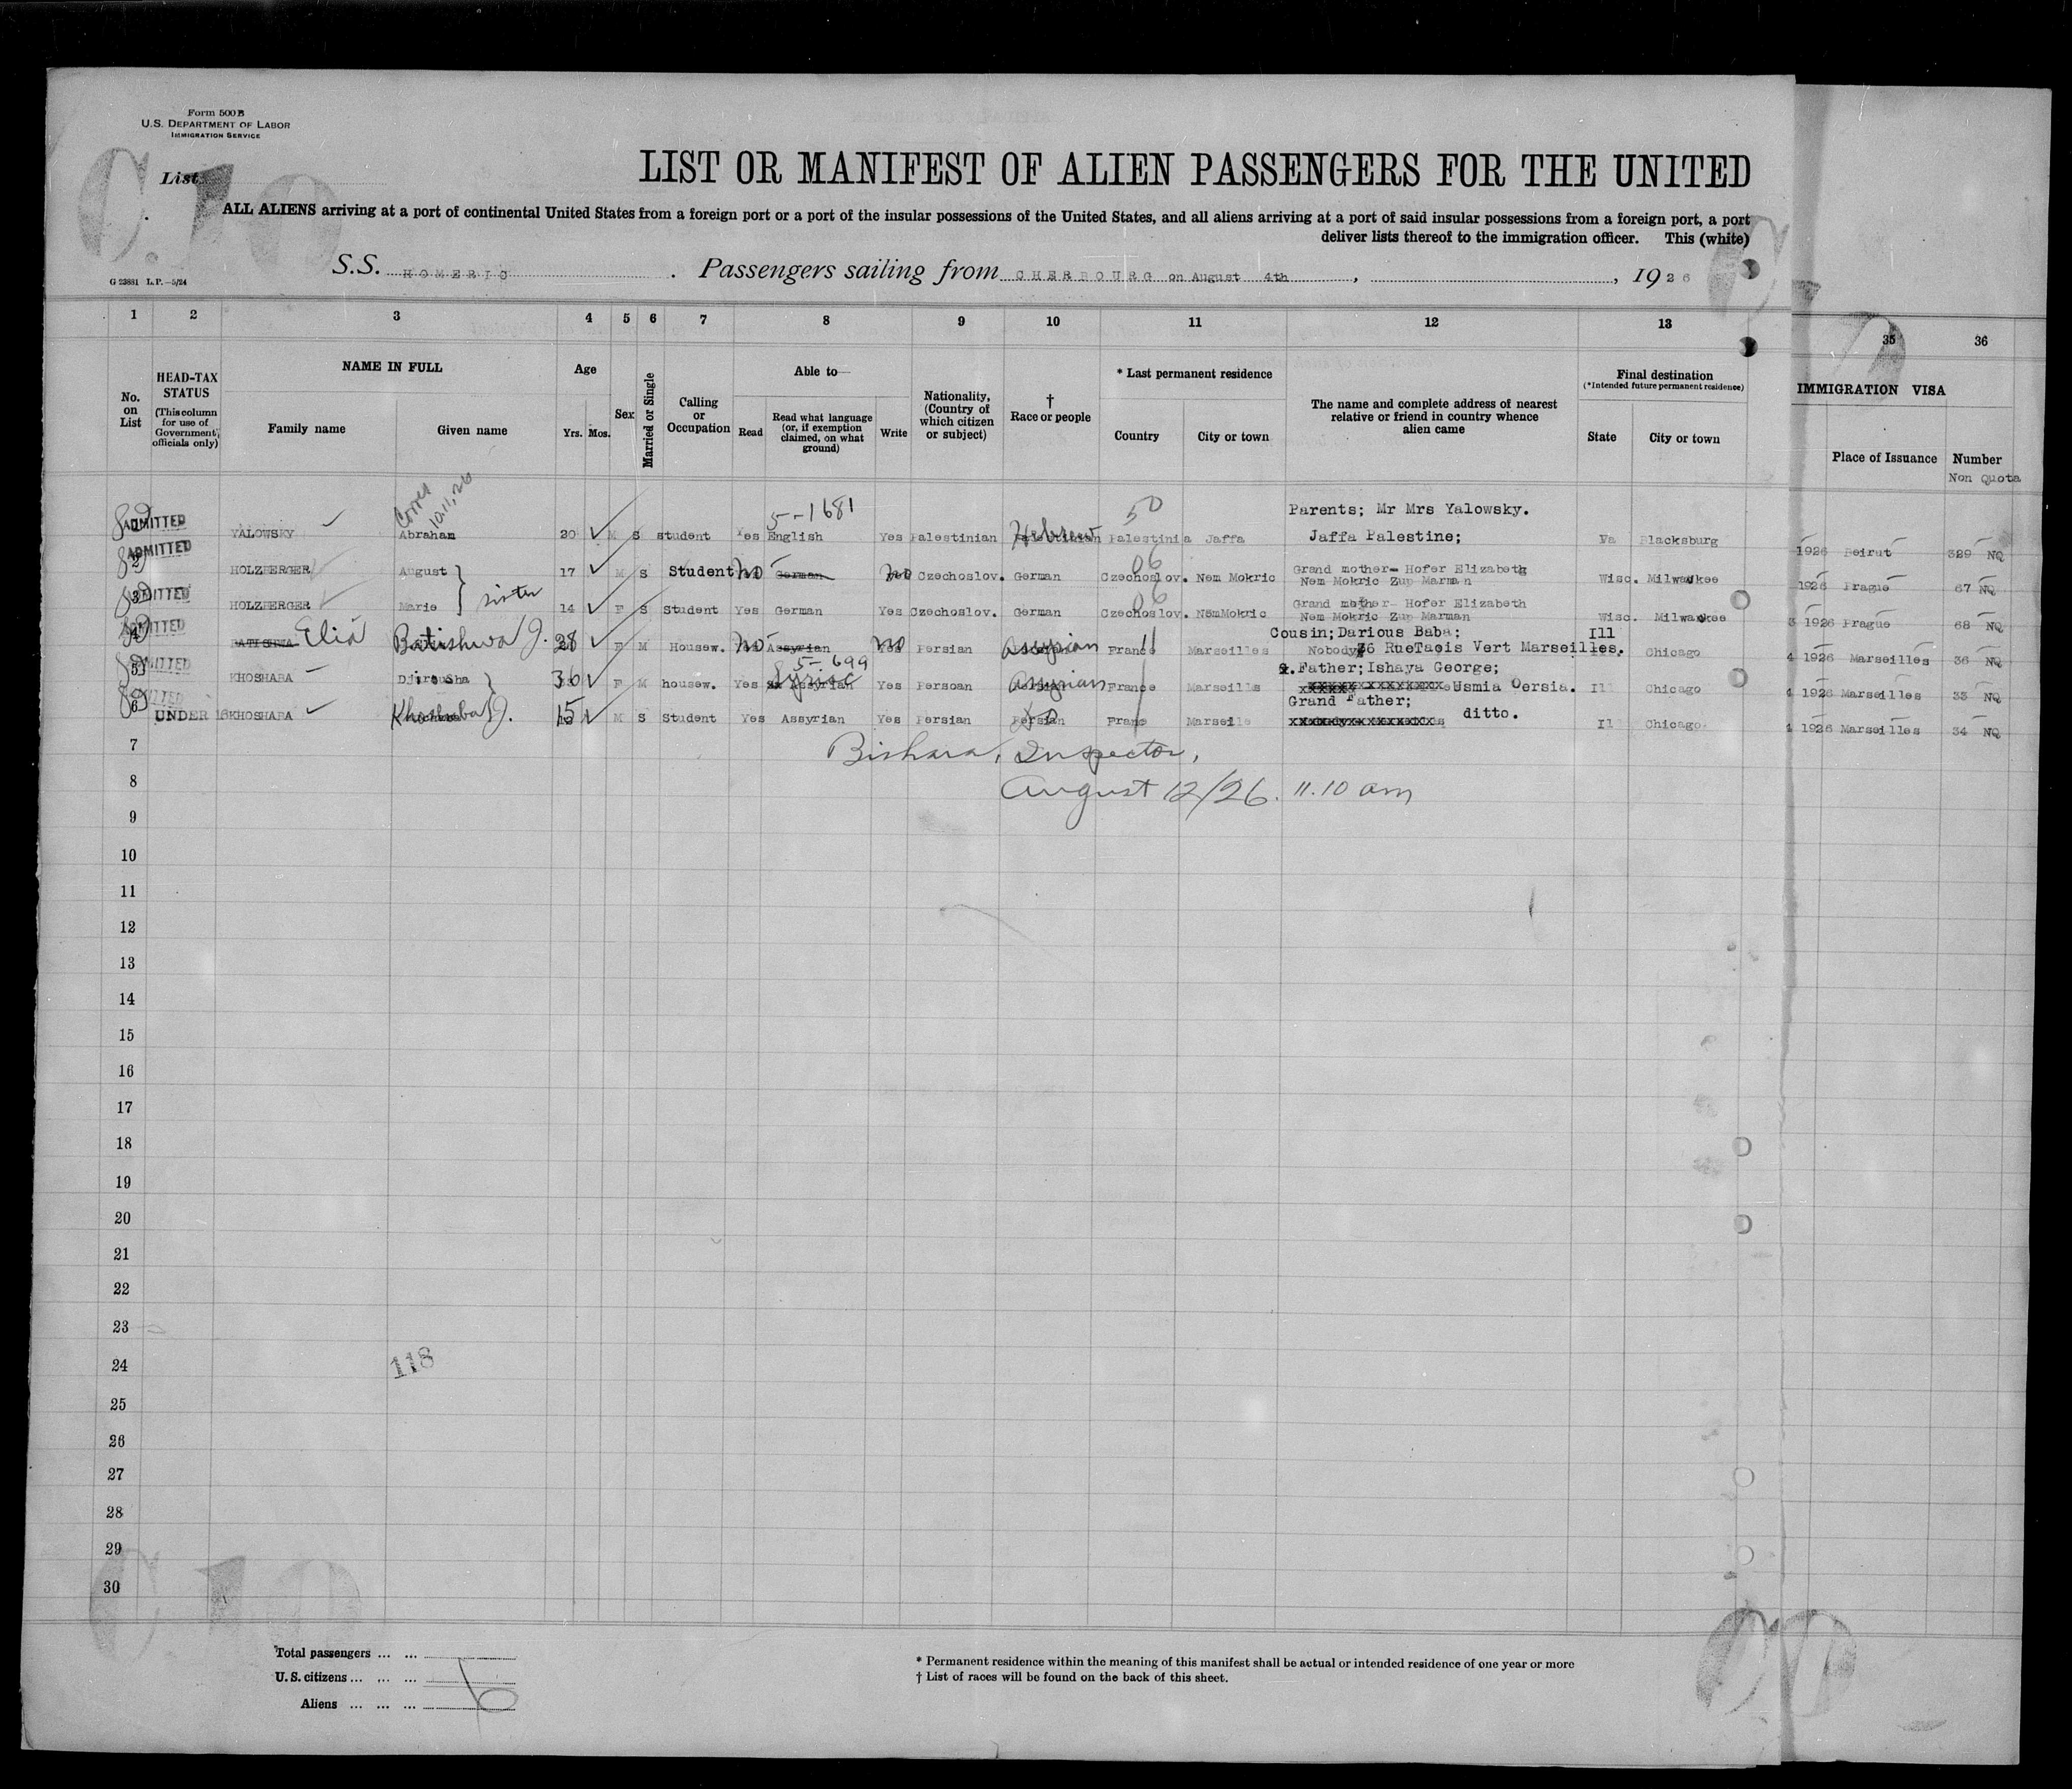 Form 500B
U.S. DEPARTMENT OF LABOR
IMMIGRATION SERVICE
List
LIST OR MANIFEST OF ALIEN PASSENGERS FOR THE UNITED
ALL ALIENS arriving at a port of continental United States from a foreign port or a port of the insular possessions of the United States, and all aliens arriving at a port of said insular possessions from a foreign port, a port
deliver lists thereof to the immigration officer. This (white)
S.S. HOMERIC. Passengers sailing from CHERBOURG on August 4th, , 1926
G 23881 L.P.—5/24
1 2 3 4 5 6 7 8 9 10 11 12 13 35 36
No. on List
HEAD-TAX STATUS (This column for use of Government officials only)
NAME IN FULL
Family name Given name
Age
Yrs. Mos.
Sex
Married or Single
Calling or Occupation
Able to—
Read
Read what language (or, if exemption claimed, on what ground)
Write
Nationality, (Country of which citizen or subject)
† Race or people
* Last permanent residence
Country City or town
The name and complete address of nearest relative or friend in country whence alien came
Final destination
(*Intended future permanent residence)
State City or town
IMMIGRATION VISA
Place of Issuance Number
Non Quota
10.11.26
5-1681 50 Parents; Mr Mrs Yalowsky.
ADMITTED YALOWSKY Abraham 20 M S student Yes English Yes Palestinian Hebrew Palestinia Jaffa Jaffa Palestine; Va Blacksburg 1926 Beirut 329 NQ
06 Grand mother- Hofer Elizabeth
2 ADMITTED HOLZBERGER August 17 M S Student no German no Czechoslov. German Czechoslov. Nem Mokric Nem Mokric Zup Marman Wisc. Milwaukee 1926 Prague 67 NQ
sister 06 Grand mother- Hofer Elizabeth
3 ADMITTED HOLZBERGER Marie 14 F S Student Yes German Yes Czechoslov. German Czechoslov. NemMokric Nem Mokric Zup Marman Wisc. Milwaukee 3 1926 Prague 68 NQ
Cousin; Darious Baba; Ill
4 ADMITTED BATISHWA Elia Batishwa J. 28 F M Housew. no Assyrian no Persian Assyrian France Marseilles Nobody 36 RueTapis Vert Marseilles. Chicago 4 1926 Marseilles 36 NQ
5-699 Father; Ishaya George;
5 ADMITTED KHOSHABA 36 F M housew. Yes Syriac Assyrian Yes Persoan Assyrian France Marseille Usmia Persia. Il Chicago 4 1926 Marseilles 33 NQ
Grand Father;
6 UNDER 16 KHOSHABA Khoshaba J. 15 M S Student Yes Assyrian Yes Persian Persian do Franc Marseile ditto. Il Chicago 4 1926 Marseilles 34 NQ
7 Bishara, Inspector,
8 August 12/26. 11.10 am
9
10
11
12
13
14
15
16
17
18
19
20
21
22
23
24 118
25
26
27
28
29
30
Total passengers ... ...
U.S. citizens ... ... ...
Aliens ... ... ... 6
* Permanent residence within the meaning of this manifest shall be actual or intended residence of one year or more
† List of races will be found on the back of this sheet.